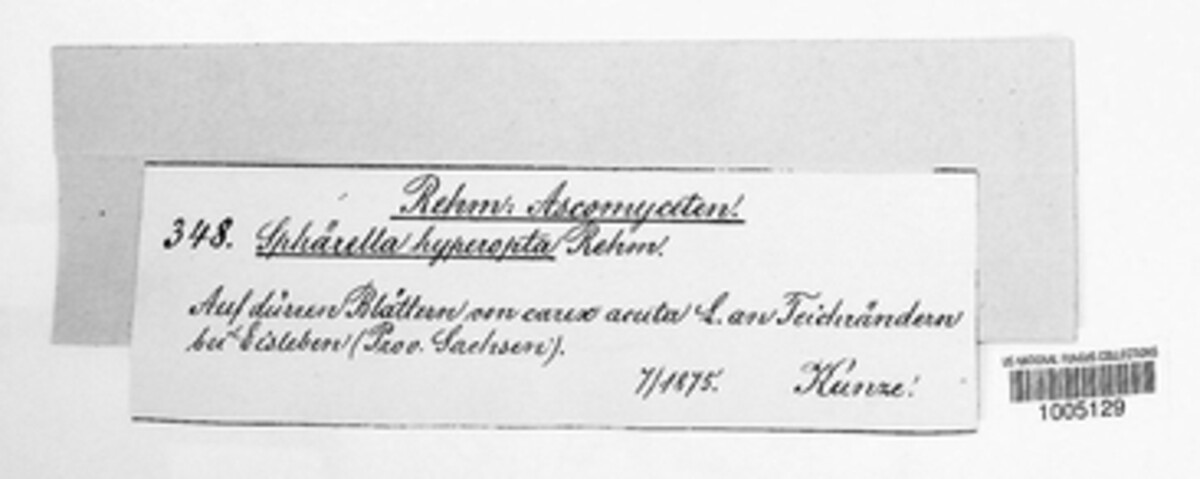 Rehm: Ascomyceten!
348. Sphärella hyperopta Rehm.
Auf dürren Blättern von carex acuta L. an Teichrändern
bei Eisleben (Prov. Sachsen).
7/1875. Kunze!
US NATIONAL FUNGUS COLLECTIONS
1005129